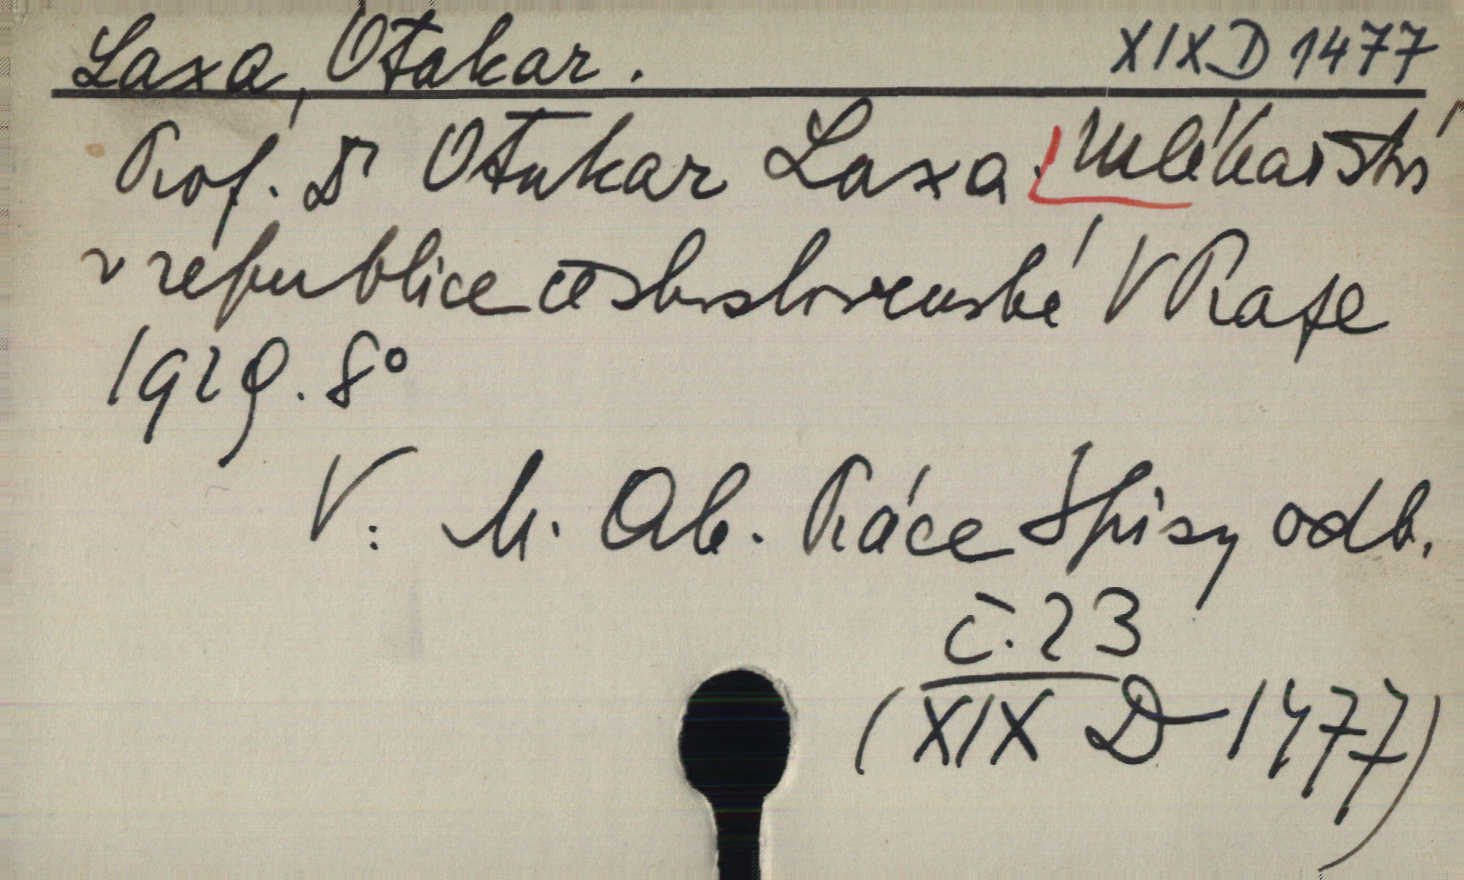 Laxa, Otakar. XIX D 1477
Prof. Dr Otakar Laxa. Mlékařství
v republice československé V Praze
1929. 8°
V: M. Ak. Práce Spisy odb.
č. 23
(XIX D 1477)